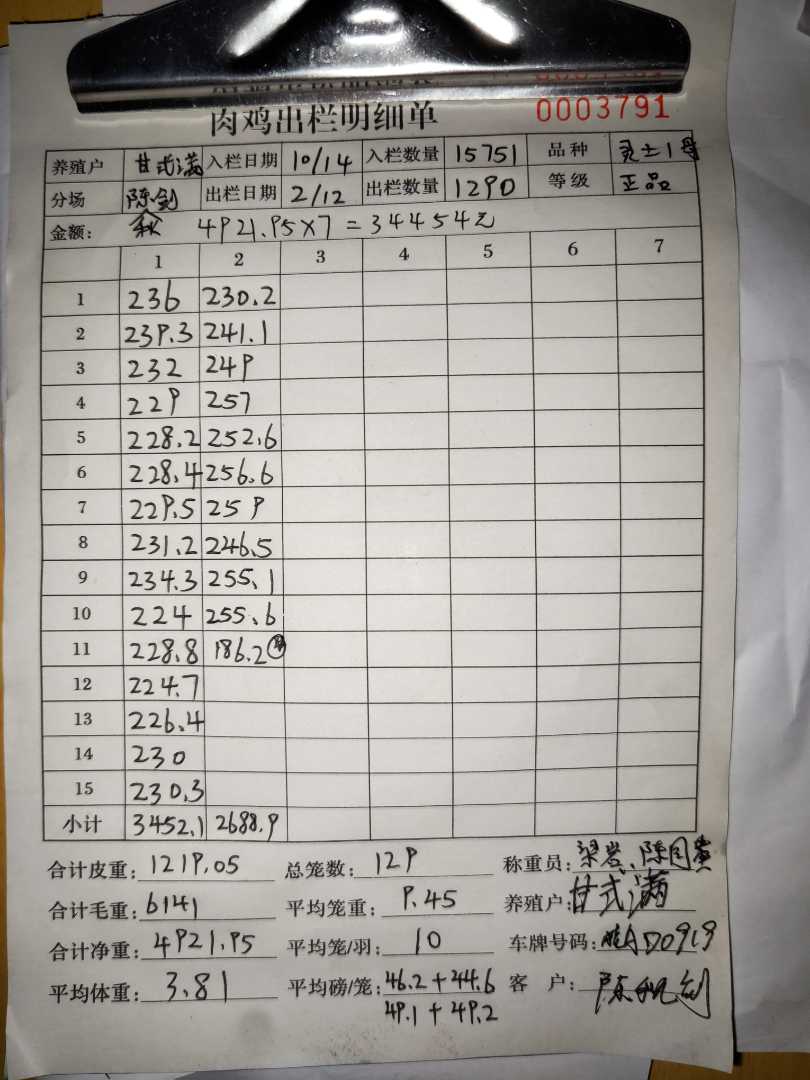 0003791
肉鸡出栏明细单
养殖户 甘式满 入栏日期 10/14 入栏数量 15751 品种 灵士1号
分场 陈剑秋 出栏日期 2/12 出栏数量 1290 等级 正品
金额: 4921.95×7=34454元
1 2 3 4 5 6 7
1 236 230.2
2 239.3 241.1
3 232 249
4 229 257
5 228.2 252.6
6 228.4 256.6
7 229.5 259
8 231.2 246.5
9 234.3 255.1
10 224 255.6
11 228.8 186.2
12 224.7
13 226.4
14 230
15 230.3
小计 3452.1 2688.9
合计皮重: 1219.05 总笼数: 129 称重员: 梁岩、陈国
合计毛重: 6141 平均笼重: 9.45 养殖户: 甘式满
合计净重: 4921.95 平均笼/羽: 10 车牌号码: AD0919
平均体重: 3.81 平均磅/笼: 46.2+44.6 客 户: 陈 剑
49.1+49.2